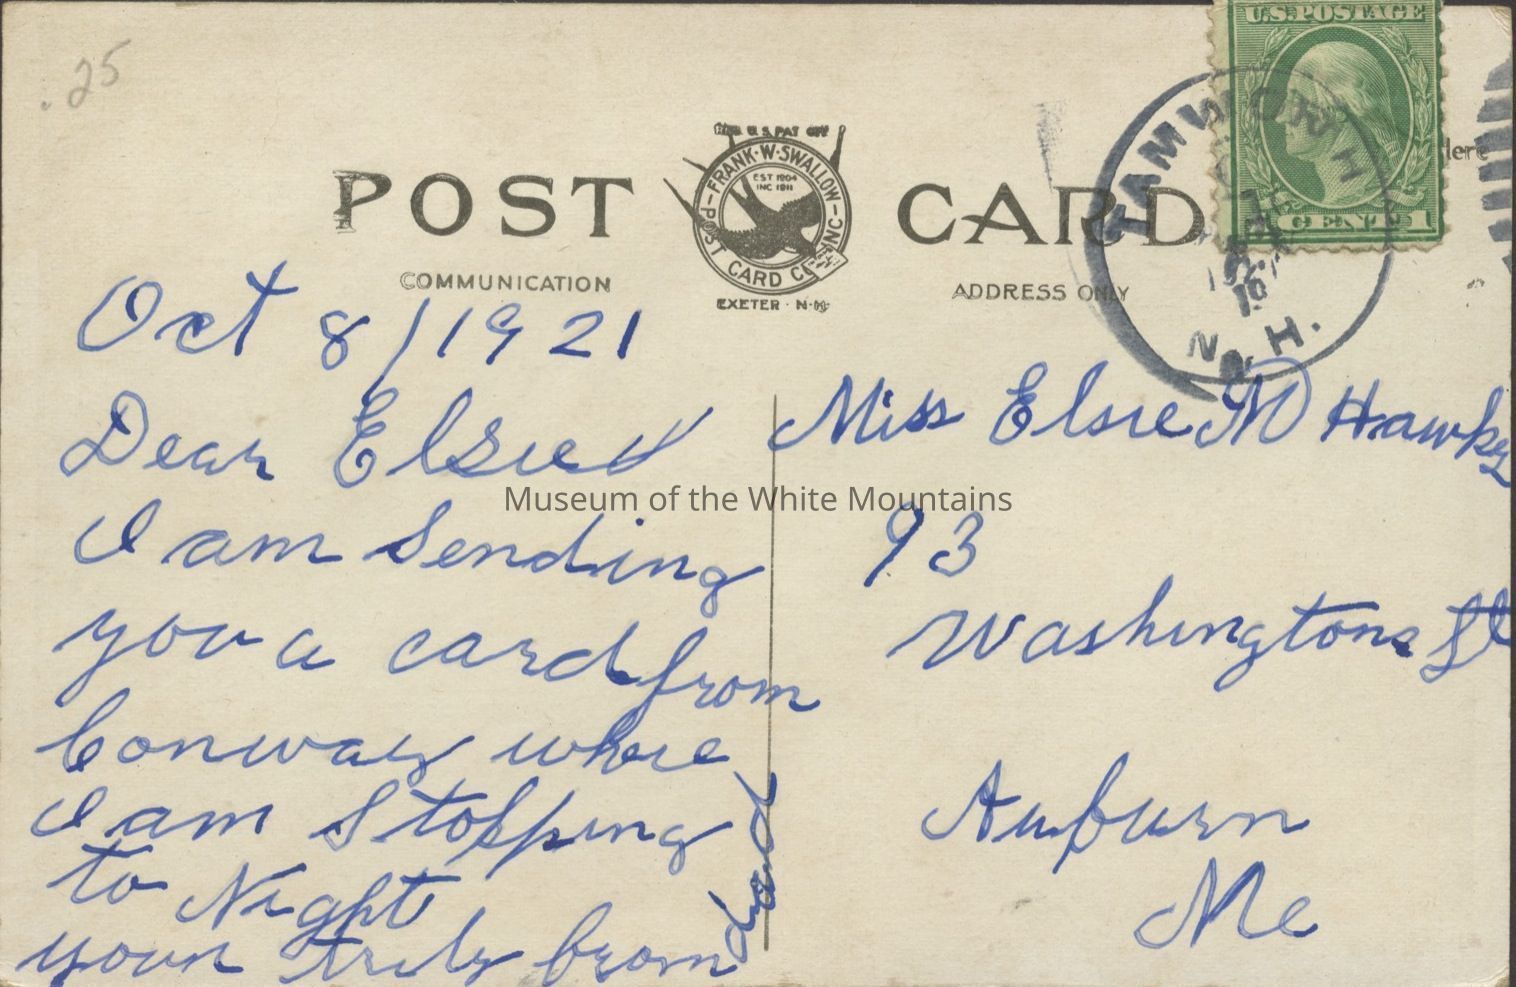 .25
U.S. POSTAGE
1 CENT 1
TAMWORTH
N.H.
Here
POST CARD
REG. U.S. PAT. OFF.
FRANK·W·SWALLOW
POST CARD CO. INC.
EST 1904
INC 1911
EXETER · N·H·
COMMUNICATION
ADDRESS ONLY
Oct 8/1921
Dear Elsie
I am Sending
you a card from
Conway where
I am Stopping
to Night
your truly from
dad
Miss Elsie M Hawkes
93
Washington St
Auburn
Me
Museum of the White Mountains